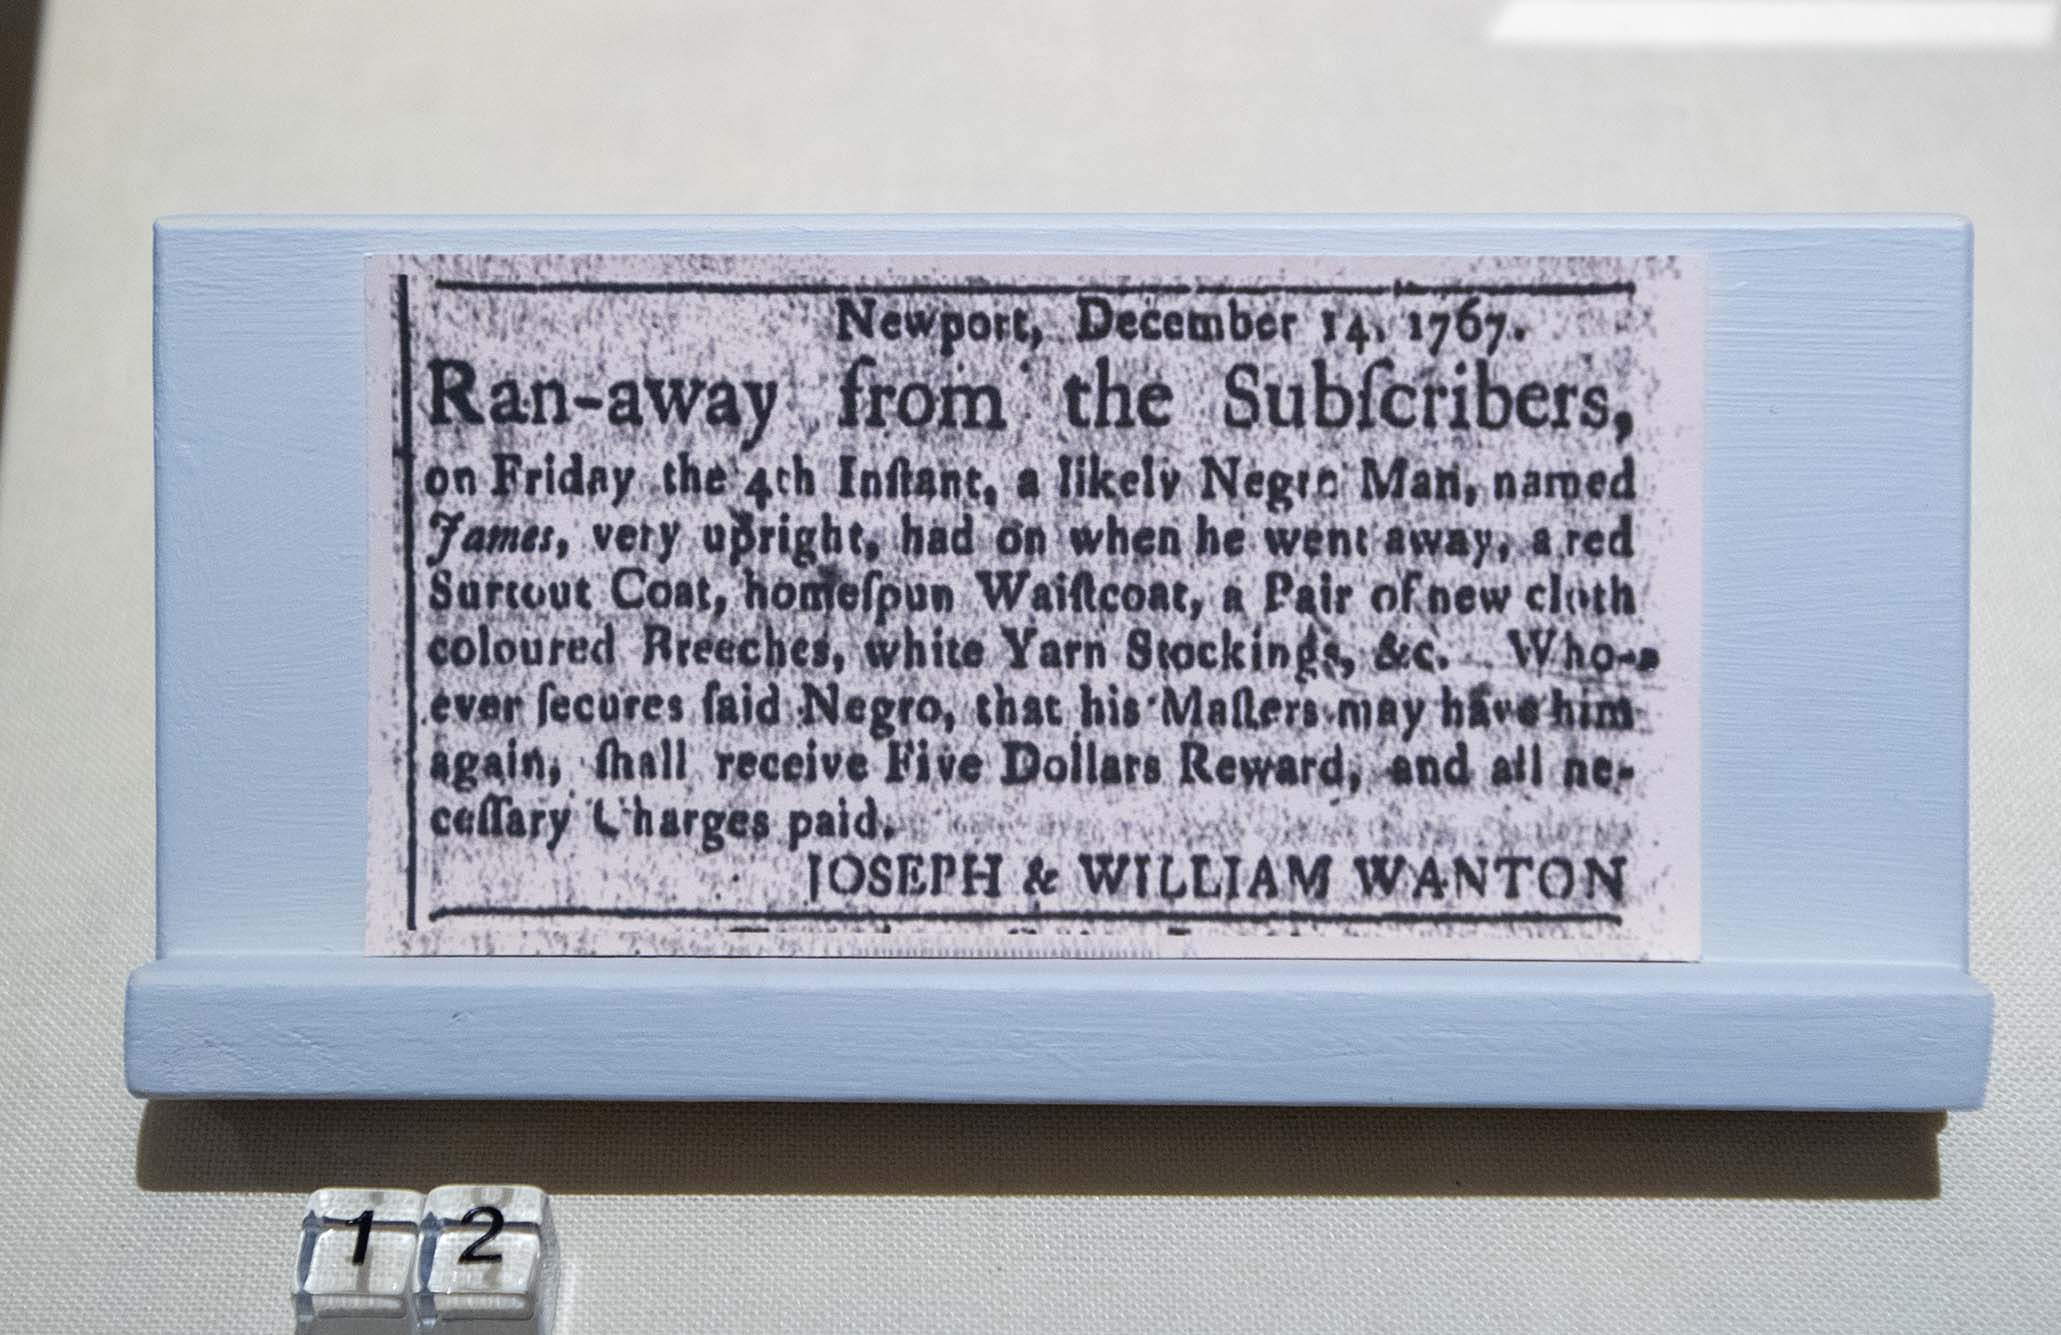 Newport, December 14, 1767.
Ran-away from the Subſcribers,
on Friday the 4th Inſtant, a likely Negro Man, named
James, very upright, had on when he went away, a red
Surtout Coat, homeſpun Waiſtcoat, a Pair of new cloth
coloured Breeches, white Yarn Stockings, &c. Who-
ever ſecures ſaid Negro, that his Maſters may have him
again, ſhall receive Five Dollars Reward, and all ne-
ceſſary Charges paid.
JOSEPH & WILLIAM WANTON
12